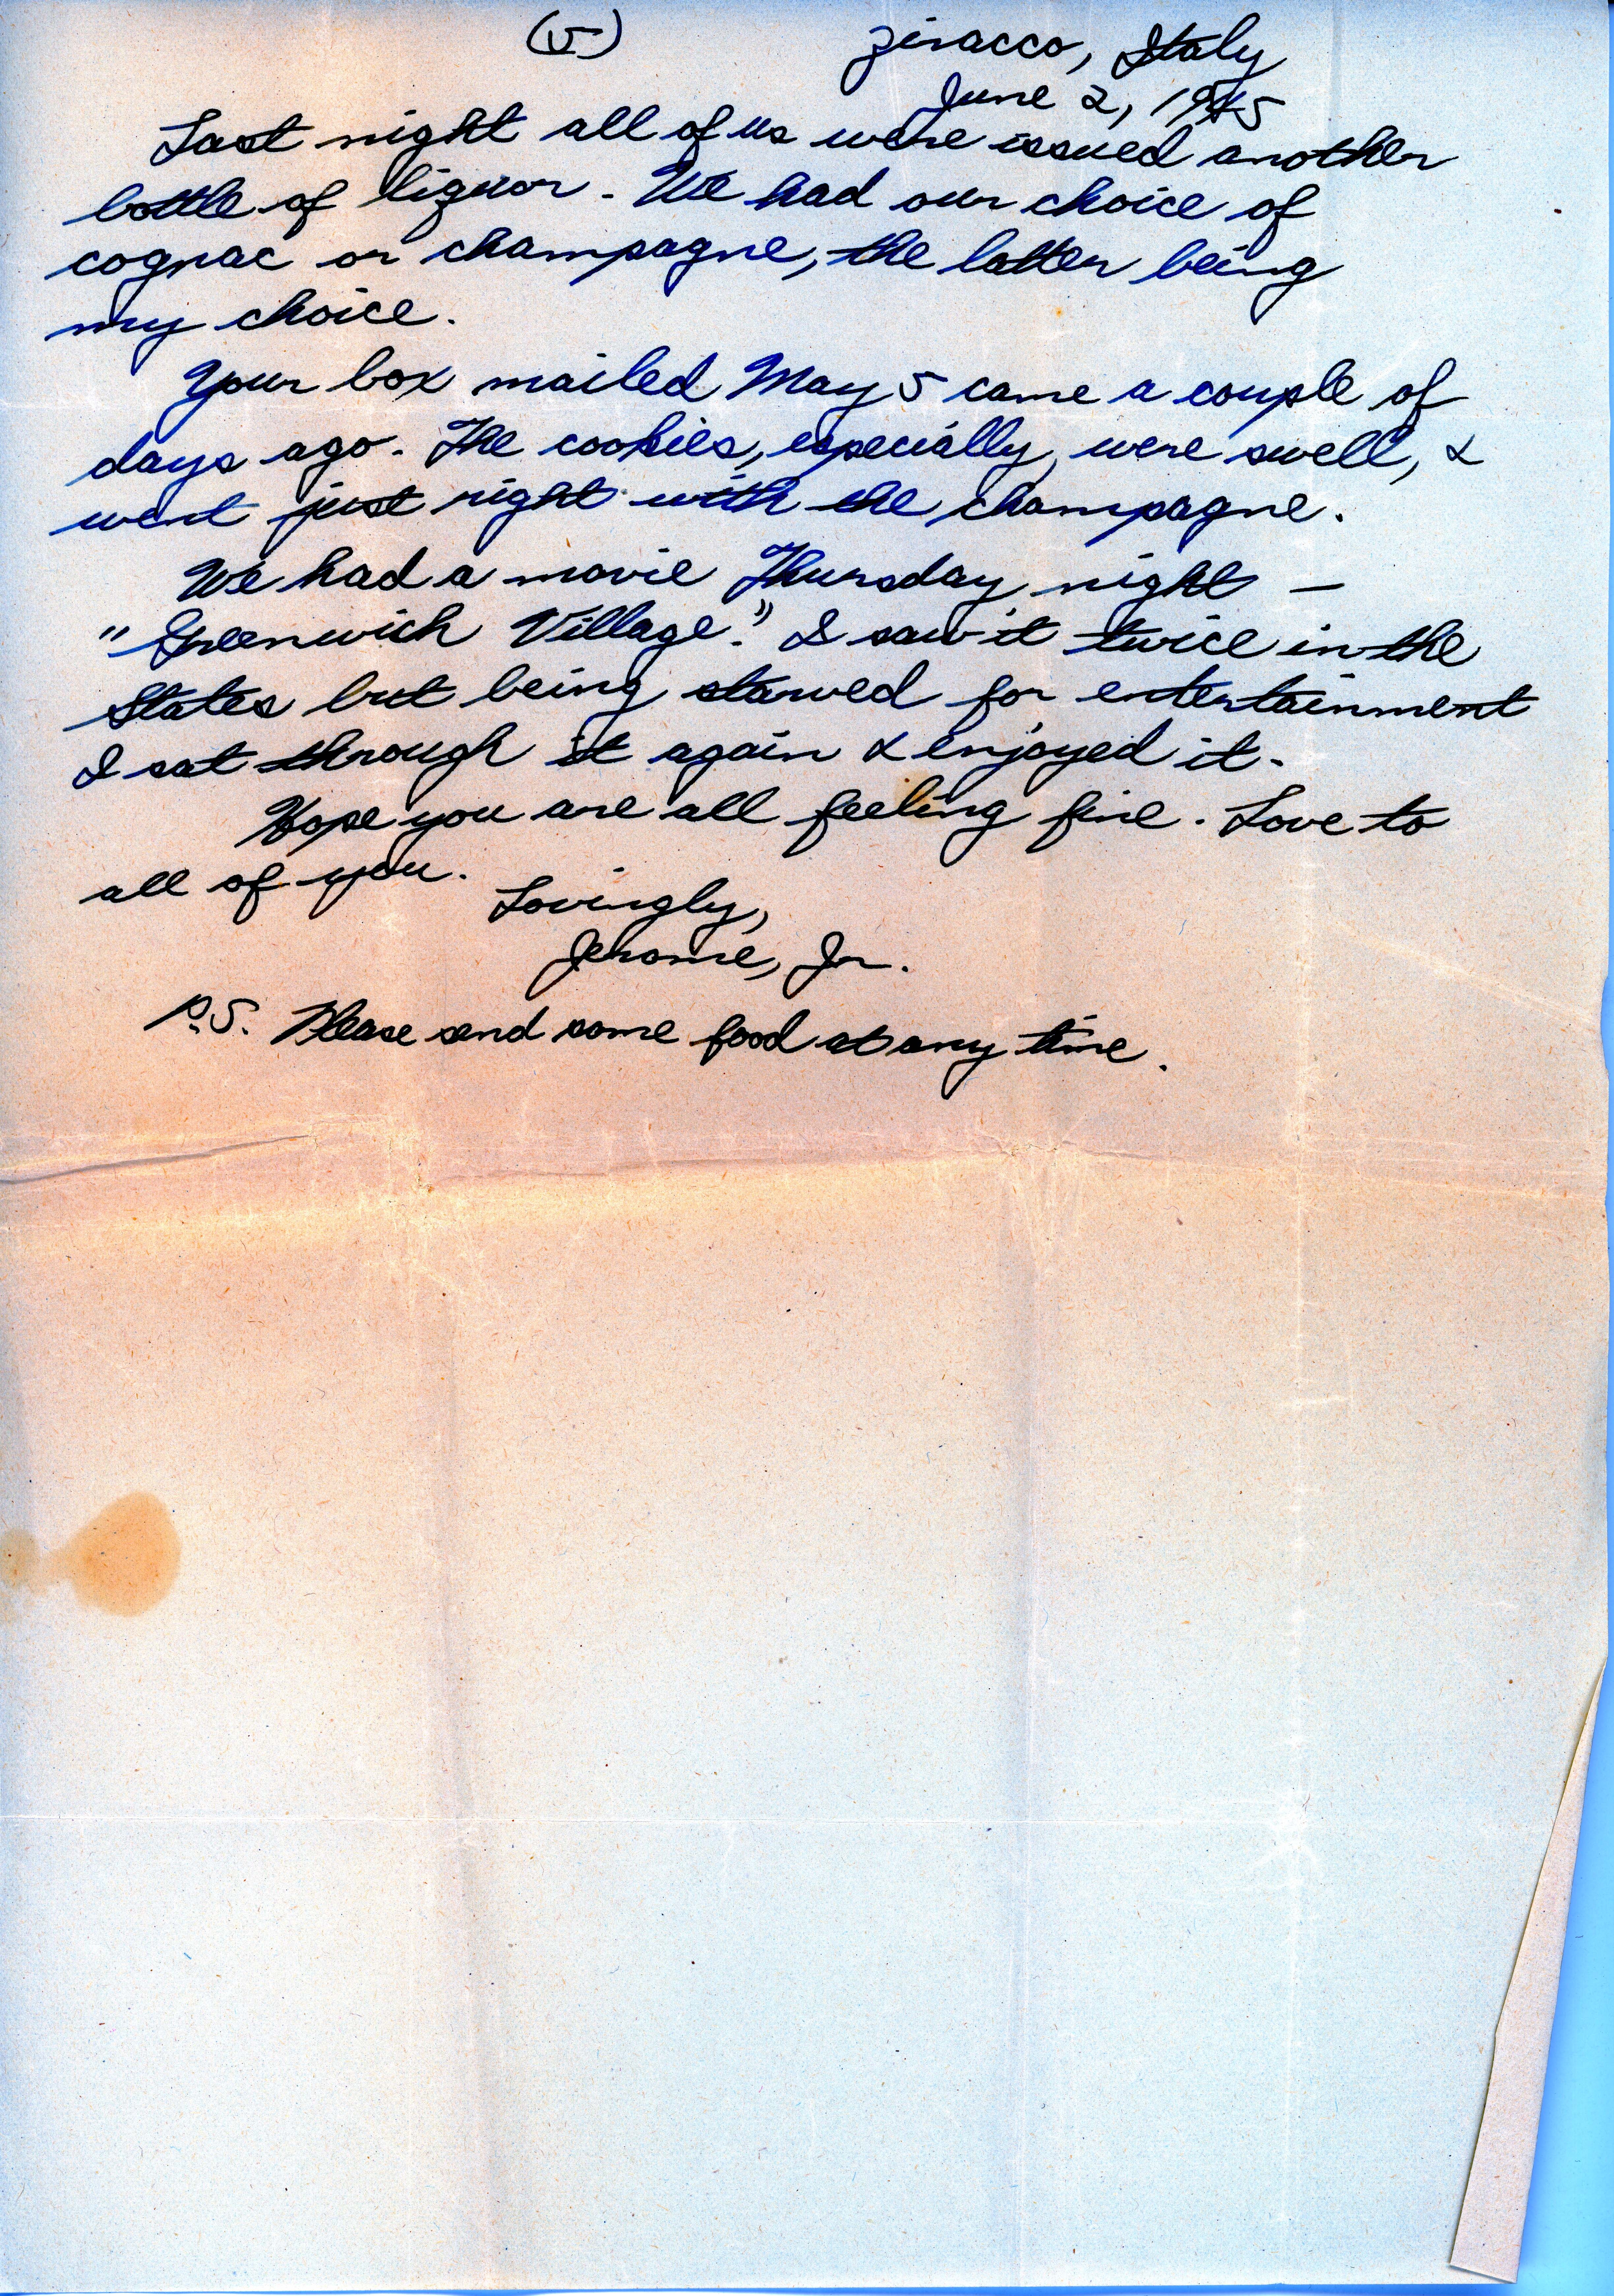 (5) Ziracco, Italy
June 2, 1945
Last night all of us were issued another
bottle of liquor. We had our choice of
cognac or champagne, the latter being
my choice.
Your box mailed May 5 came a couple of
days ago. The cookies, especially, were swell, &
went just right with the champagne.
We had a movie Thursday night —
"Greenwich Village." I saw it twice in the
States but being starved for entertainment
I sat through it again & enjoyed it.
Hope you are all feeling fine. Love to
all of you.
Lovingly,
Jerome, Jr.
P.S. Please send some food at any time.